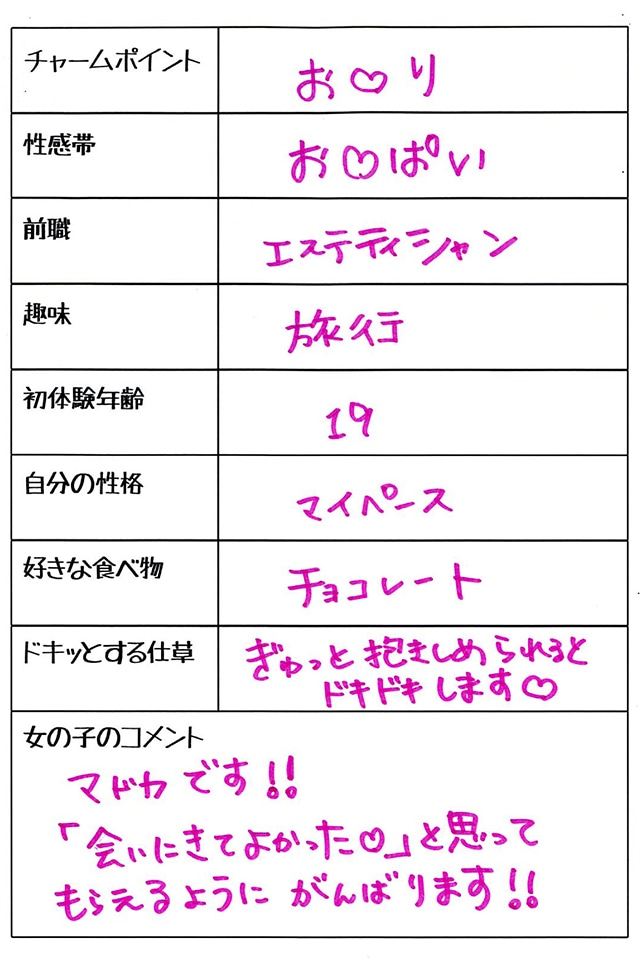 チャームポイント お♡り
性感帯 お♡ぱい
前職 エステティシャン
趣味 旅行
初体験年齢 19
自分の性格 マイペース
好きな食べ物 チョコレート
ドキッとする仕草 ぎゅっと抱きしめられると
ドキドキします♡
女の子のコメント
マドカです!!
「会いにきてよかった♡」と思って
もらえるように がんばります!!